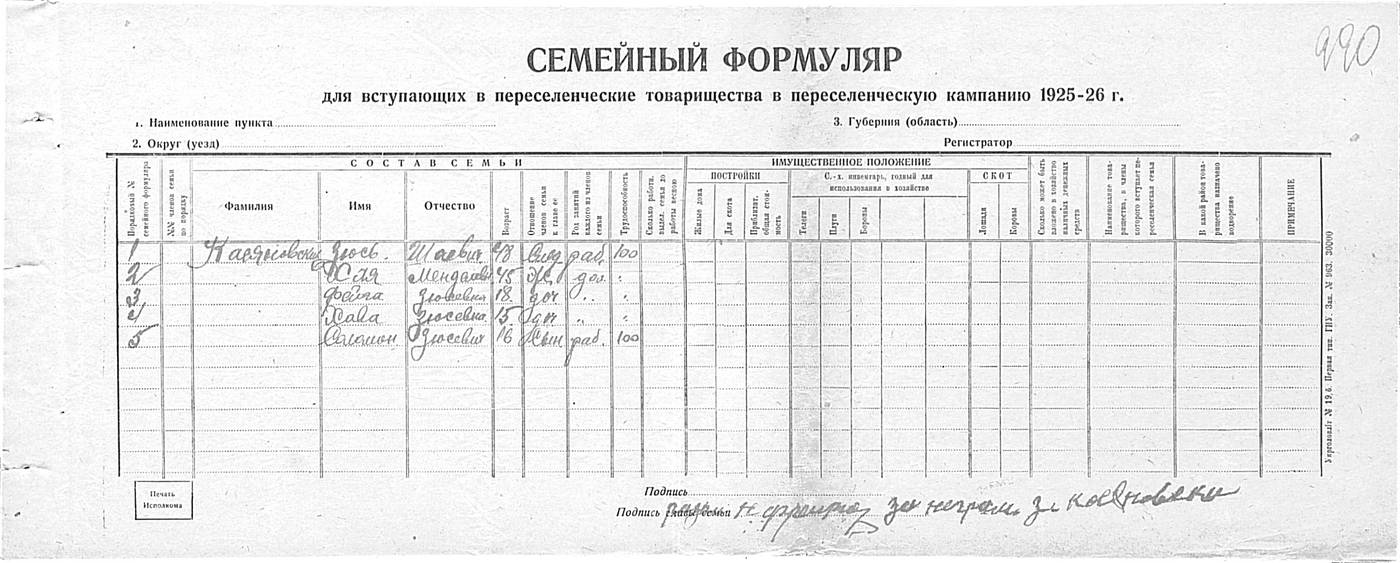 990
СЕМЕЙНЫЙ ФОРМУЛЯР
для вступающих в переселенческие товарищества в переселенческую кампанию 1925-26 г.
1. Наименование пункта
3. Губерния (область)
2. Округ (уезд)
Регистратор
СОСТАВ СЕМЬИ
ИМУЩЕСТВЕННОЕ ПОЛОЖЕНИЕ
ПОСТРОЙКИ
С.-х. инвентарь, годный для использования в хозяйстве
СКОТ
Порядковый № семейного формуляра
№№ членов семьи по порядку
Фамилия
Имя
Отчество
Возраст
Отношение членов семьи к главе ее
Род занятий каждого из членов семьи
Трудоспособность
Сколько работн. выдел. семья до работы весною
Жилые дома
Для скота
Приблизит. общая стоимость
Телеги
Плуги
Бороны
Лошади
Коровы
Сколько может быть вложено в хозяйство наличных денежных средств
Наименование товарищества, в члены которого вступает переселенческая семья
В какой район товарищества назначено водворение
ПРИМЕЧАНИЕ
1 Зюсь. Шаевич 48 раб. 100
2 Менделевн 45 Ж. дом. "
3 Фейга Зюсевна 18. доч " "
4 Хава Зюсевна 15 доч " "
5 Соломон Зюсевич 16 Сын раб. 100
Укрголовліт № 19,6. Первая тип. ГИУ. Зак. № 963. 30000
Печать
Исполкома
Подпись
Подпись главы семьи за неграм.